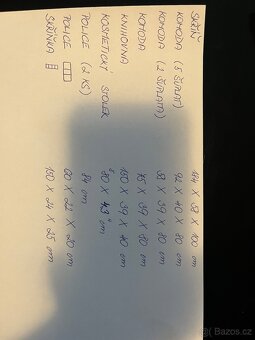 SKŘÍŇ 184 X 58 X 100 cm
KOMODA (5 ŠUPLAT) 92 X 40 X 80 cm
KOMODA (2 ŠUPLATA) 82 X 39 X 80 cm
KOMODA 75 X 39 X 80 cm
KNIHOVNA 150 X 39 X 40 cm
KOSMETICKÝ STOLEK 80 X 43 cm
POLICE (2 KS) 84 cm
POLICE 60 X 22 X 20 cm
SKŘÍŇKA 150 X 24 X 25 cm
Sbazar.cz